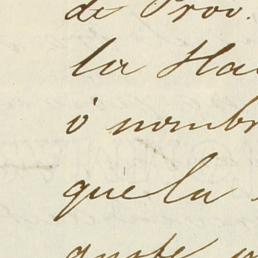 de Prov.
la Ha
ó nombr
que la